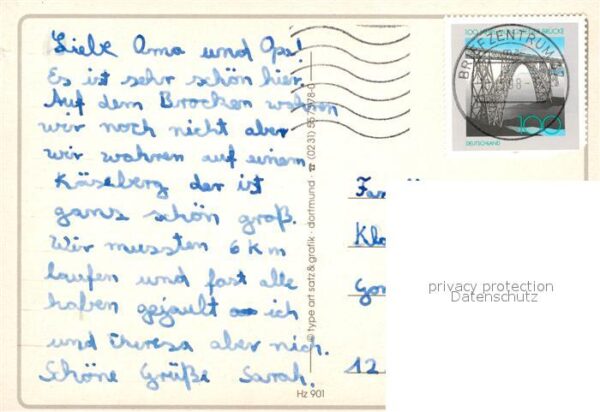 Liebe Oma und Opa!
Es ist sehr schön hier.
Auf dem Brocken wahren
wir noch nicht aber
wir wahren auf einem
Käseberg der ist
gans schön groß.
Wir mussten 6 Km
laufen und fast alle
haben gejault ich
und Theresa aber nich.
Schöne Grüße Sarah.
© type art satz & grafik · dortmund · ☎ (0231)
Hz 901
BRIEFZENTRUM
BRÜCKE
100
DEUTSCHLAND
Fa
Klo
Gor
12
privacy protection
Datenschutz